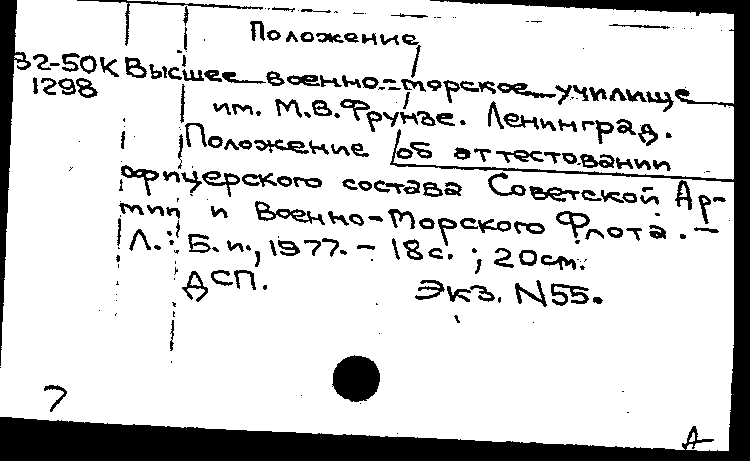 Положение
32-50К Высшее военно-морское училище
1298 им. М.В.Фрунзе. Ленинград.
Положение об аттестовании
офицерского состава Советской Ар-
мии и Военно-Морского Флота. –
Л.: Б.и., 1977. – 18с. ; 20см.
ДСП. Экз. N55.
7
А